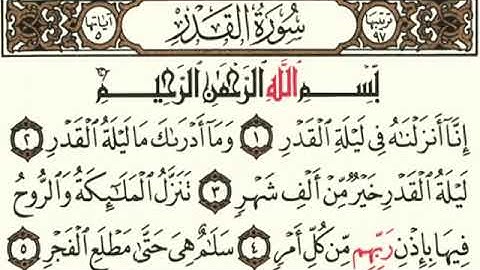 ترتيبها ٩٧ سُورَةُ القَدْرِ آياتها ٥
بِسْمِ اللَّهِ الرَّحْمَٰنِ الرَّحِيمِ
إِنَّا أَنزَلْنَاهُ فِي لَيْلَةِ الْقَدْرِ ١ وَمَا أَدْرَاكَ مَا لَيْلَةُ الْقَدْرِ ٢
لَيْلَةُ الْقَدْرِ خَيْرٌ مِّنْ أَلْفِ شَهْرٍ ٣ تَنَزَّلُ الْمَلَائِكَةُ وَالرُّوحُ
فِيهَا بِإِذْنِ رَبِّهِم مِّن كُلِّ أَمْرٍ ٤ سَلَامٌ هِيَ حَتَّىٰ مَطْلَعِ الْفَجْرِ ٥